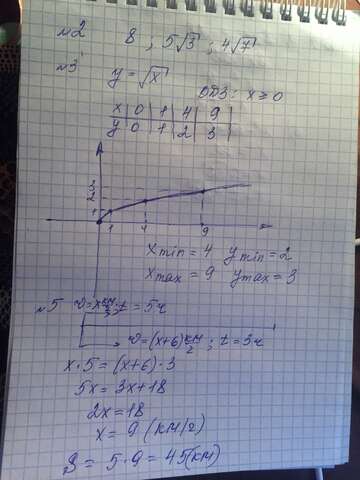 №2 8 ; 5√3 ; 4√7
№3 y = √x
ОДЗ: x ≥ 0
x | 0 | 1 | 4 | 9 |
y | 0 | 1 | 2 | 3 |
3
2
1
1 4 9
xmin = 4 ymin = 2
xmax = 9 ymax = 3
№5 v = x км/ч; t = 5ч
v = (x+6) км/ч ; t = 3ч
x · 5 = (x+6) · 3
5x = 3x + 18
2x = 18
x = 9 (км/ч)
S = 5 · 9 = 45 (км)